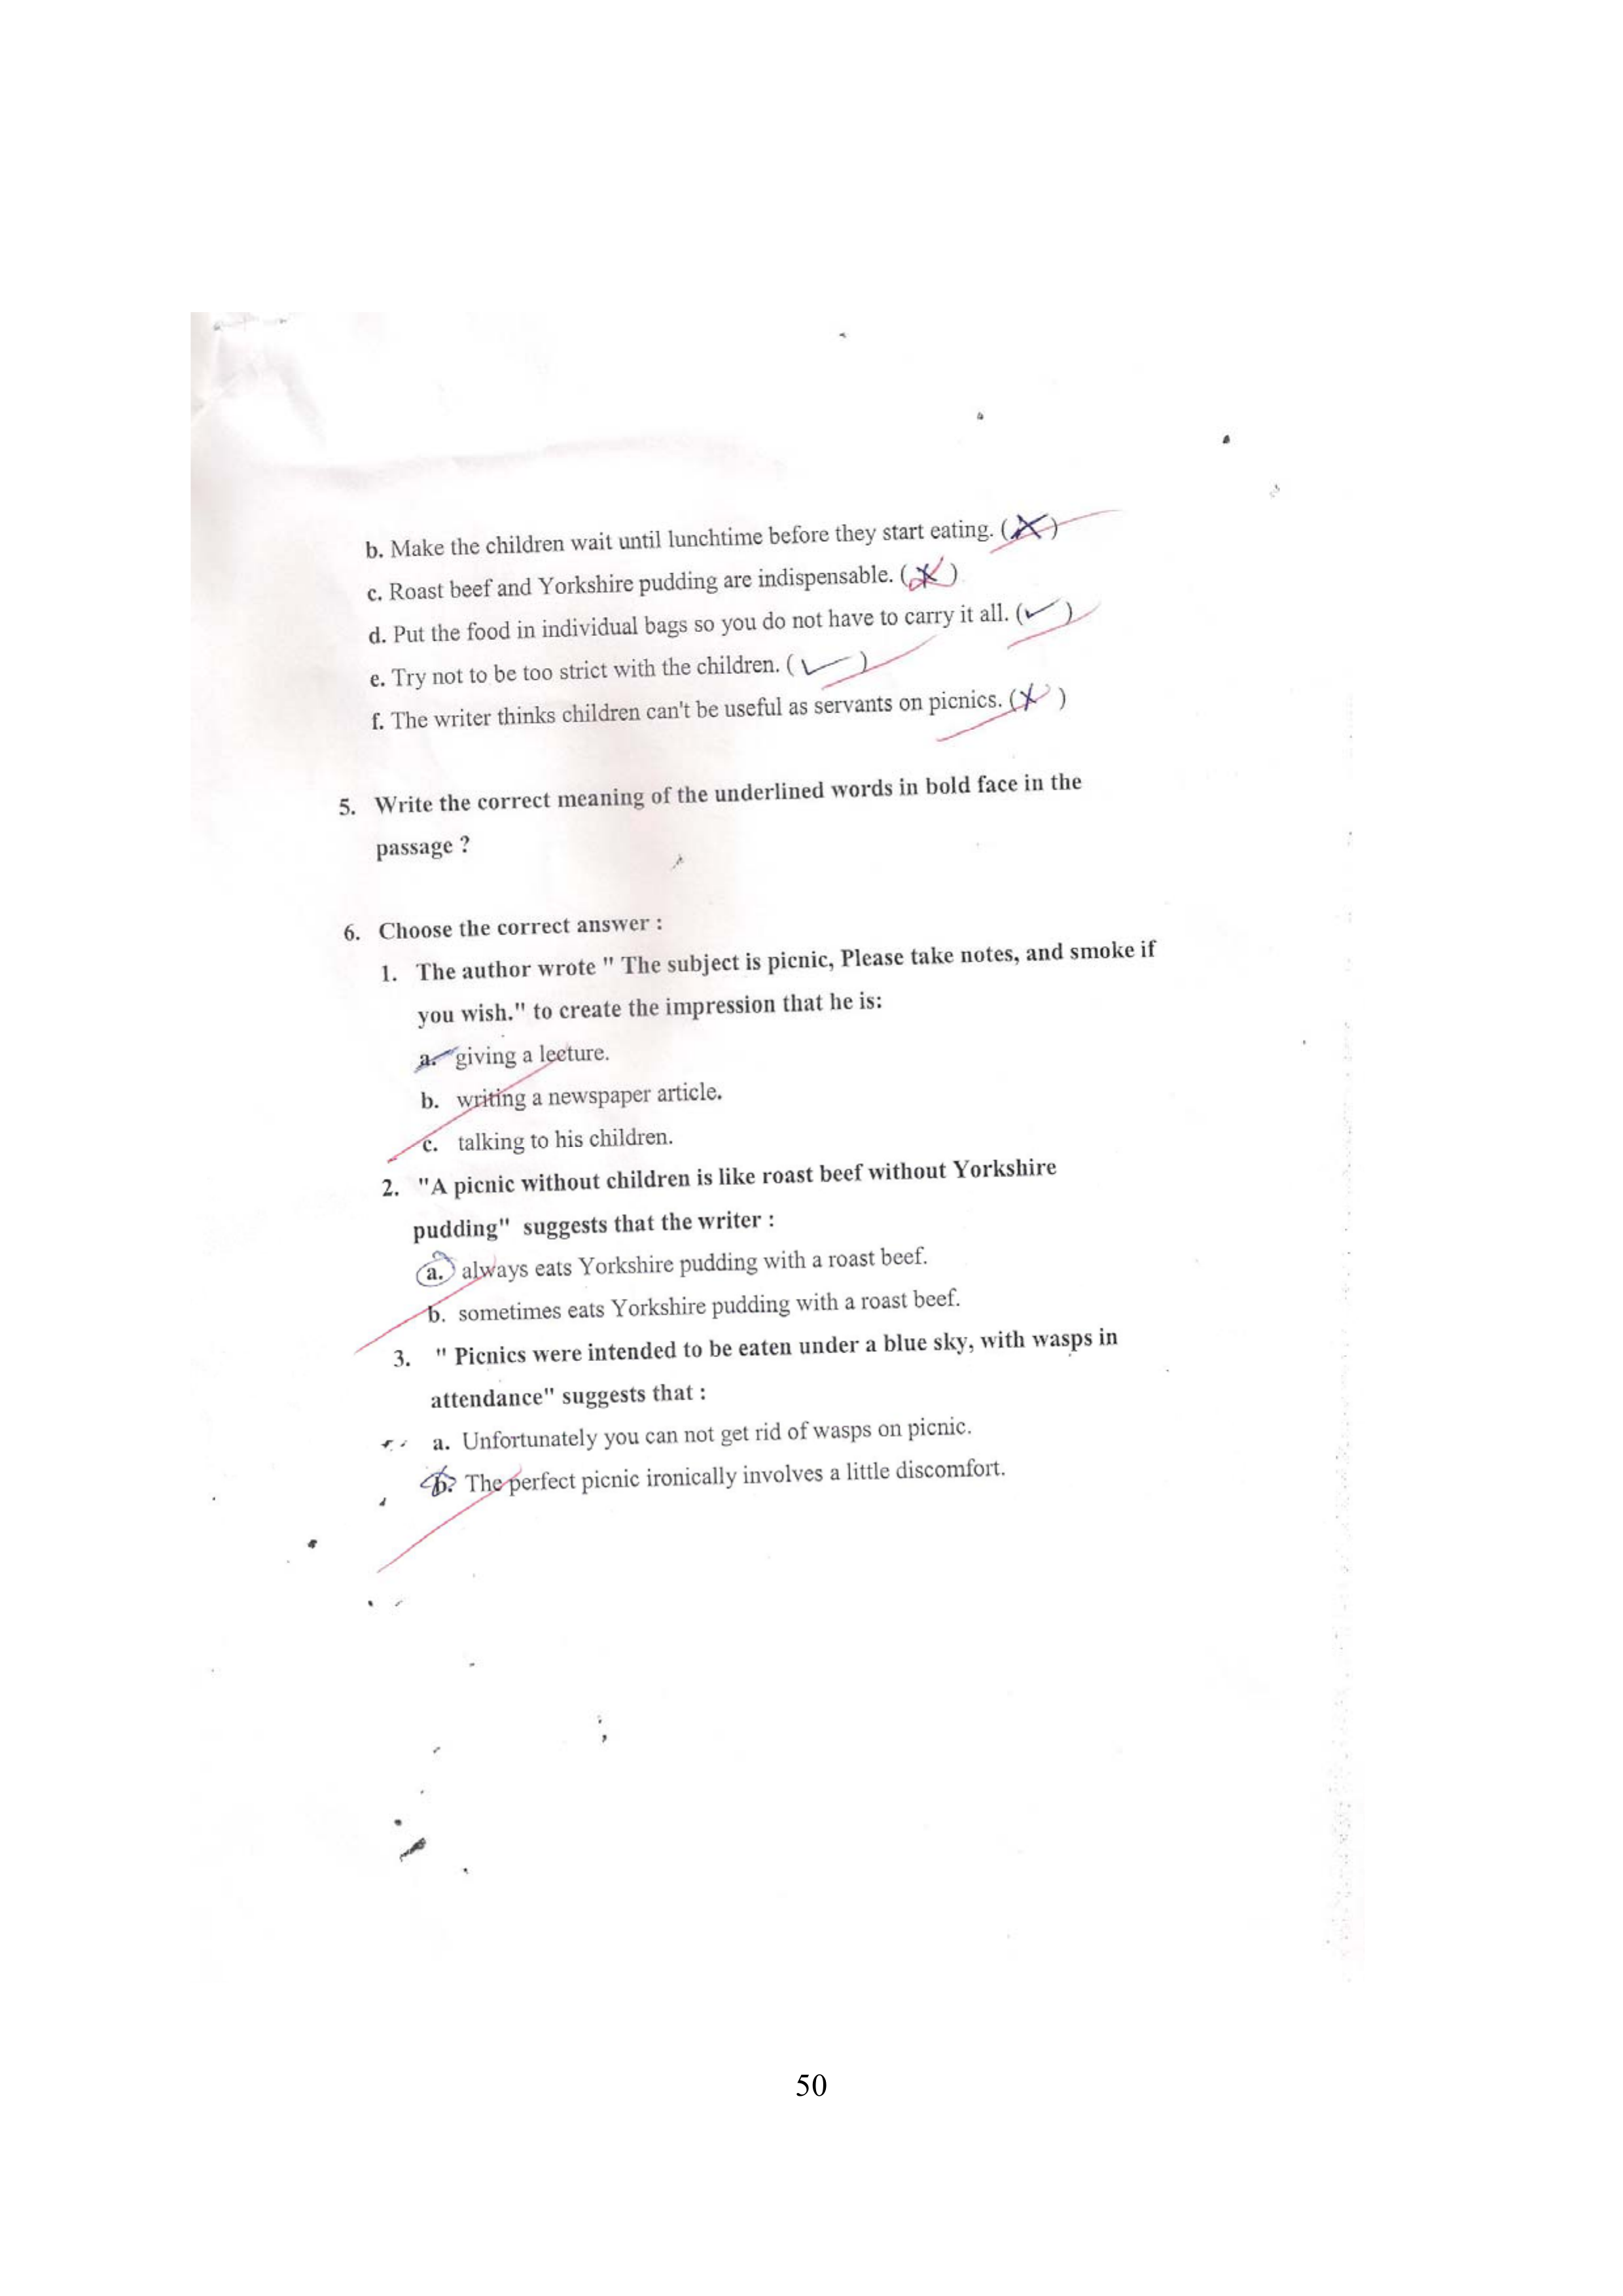 b. Make the children wait until lunchtime before they start eating. (X)
c. Roast beef and Yorkshire pudding are indispensable. (X)
d. Put the food in individual bags so you do not have to carry it all. (✓)
e. Try not to be too strict with the children. (✓)
f. The writer thinks children can't be useful as servants on picnics. (X)
5. Write the correct meaning of the underlined words in bold face in the
passage ?
6. Choose the correct answer :
1. The author wrote " The subject is picnic, Please take notes, and smoke if
you wish." to create the impression that he is:
a. giving a lecture.
b. writing a newspaper article.
c. talking to his children.
2. "A picnic without children is like roast beef without Yorkshire
pudding" suggests that the writer :
a. always eats Yorkshire pudding with a roast beef.
b. sometimes eats Yorkshire pudding with a roast beef.
3. " Picnics were intended to be eaten under a blue sky, with wasps in
attendance" suggests that :
a. Unfortunately you can not get rid of wasps on picnic.
b. The perfect picnic ironically involves a little discomfort.
50